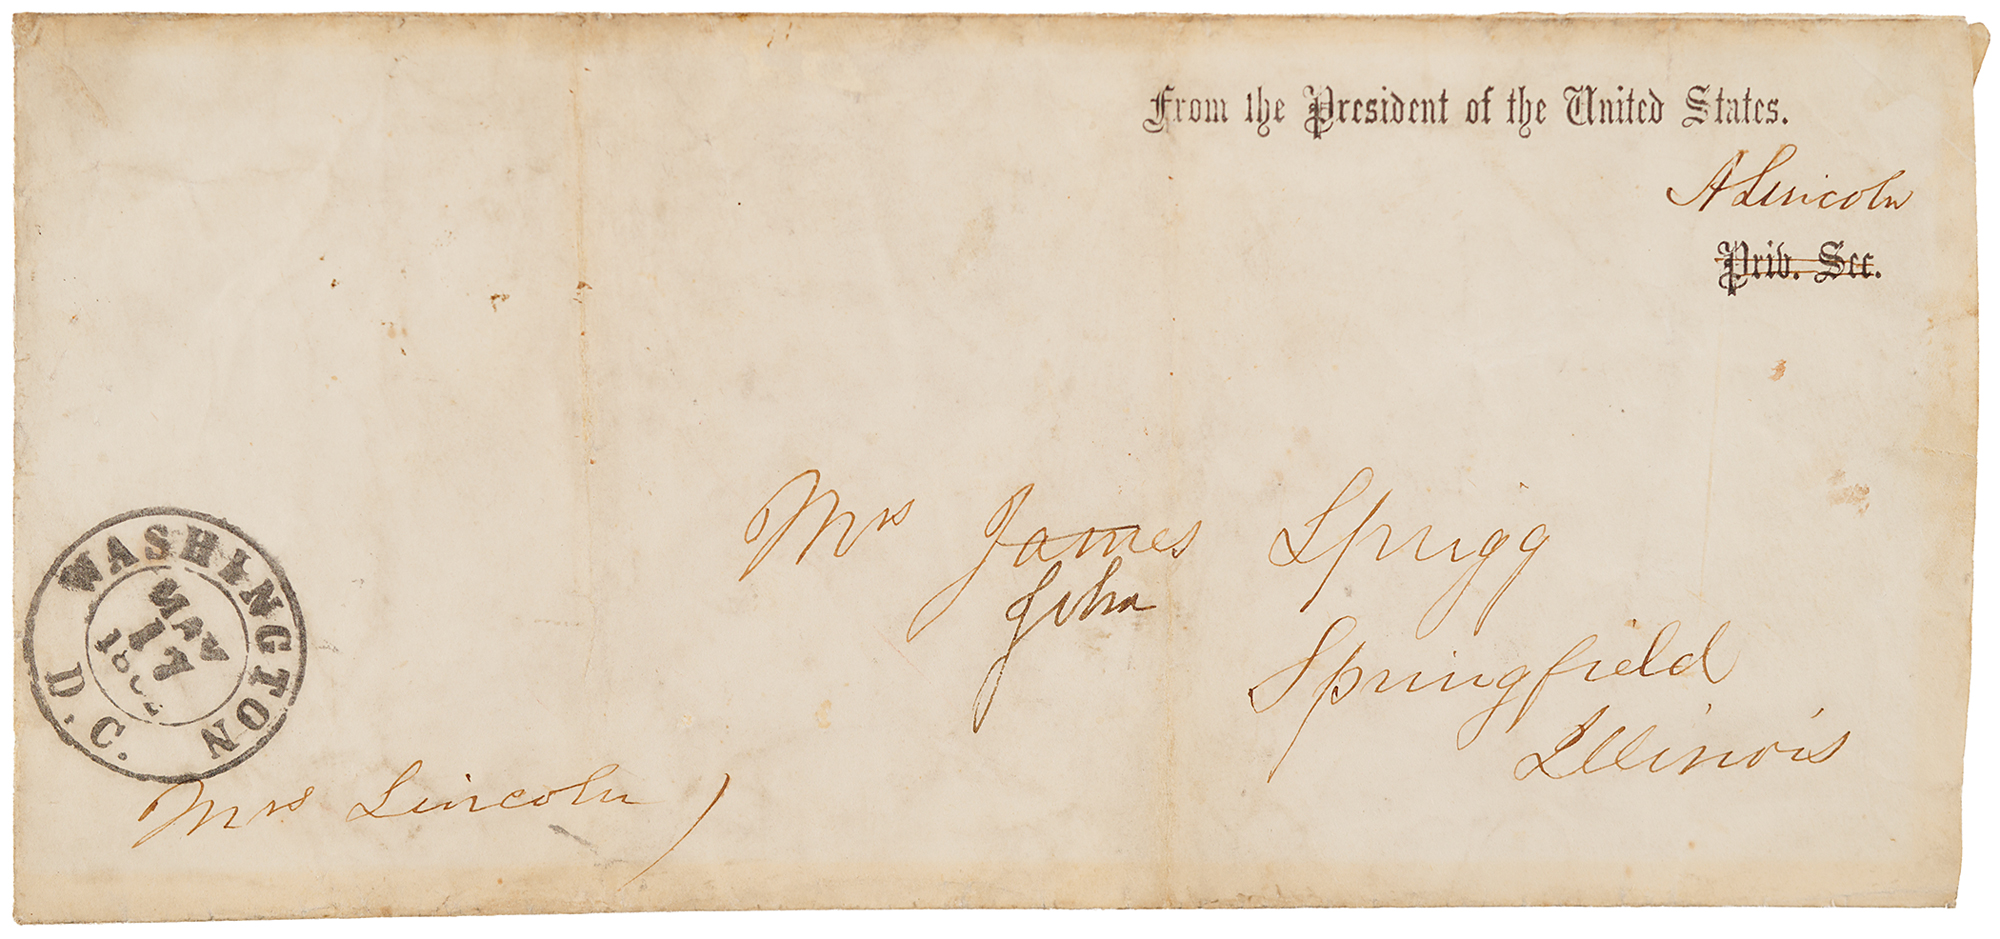 From the President of the United States.
A Lincoln
Priv. Sec.
Mrs James Sprigg
John
Springfield
Illinois
WASHINGTON
MAY
17
D. C.
Mrs Lincoln)